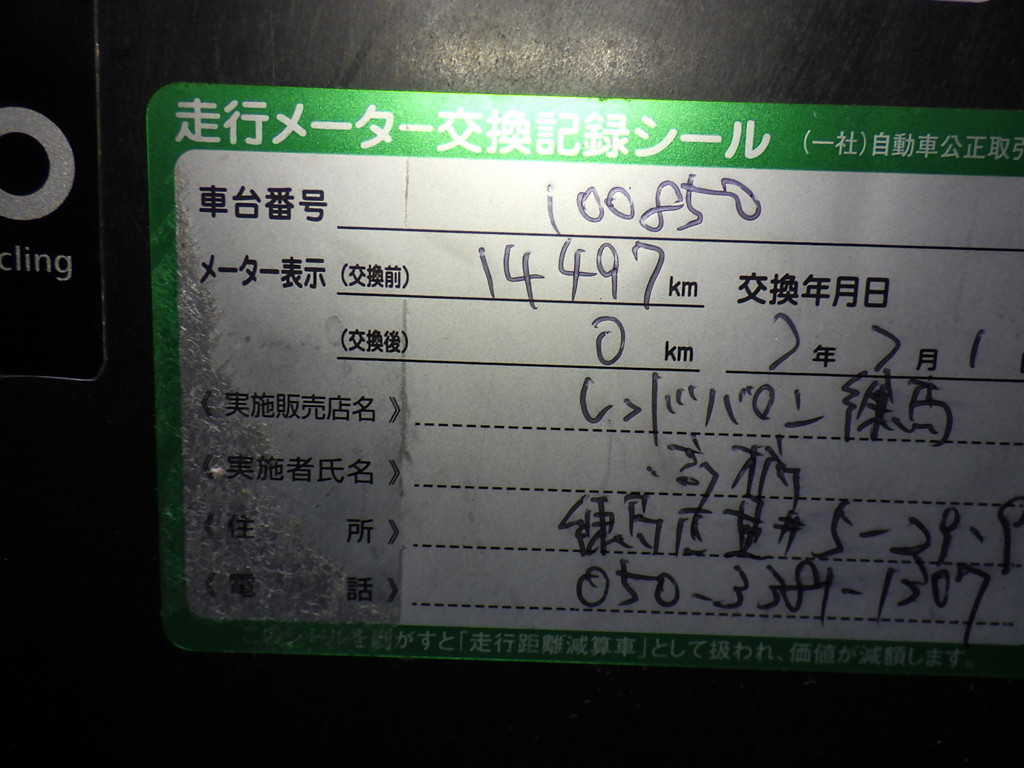 cling
走行メーター交換記録シール (一社)自動車公正取引
車台番号 100850
メーター表示 (交換前) 14497 km 交換年月日
(交換後) 0 km 7年 7月 1
《実施販売店名》 レッドバロン 練馬
《実施者氏名》 高橋
《住所》 練馬区 5-39-9
《電話》 050-3381-1307
このシールを剥がすと「走行距離減算車」として扱われ、価値が減額します。